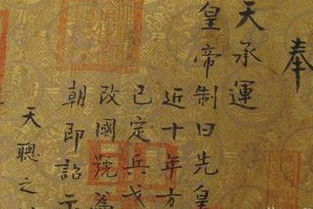 奉
天承運
皇帝制曰先皇
近十年方
已定兵戈
改國號為
朝即詔示
天聰之